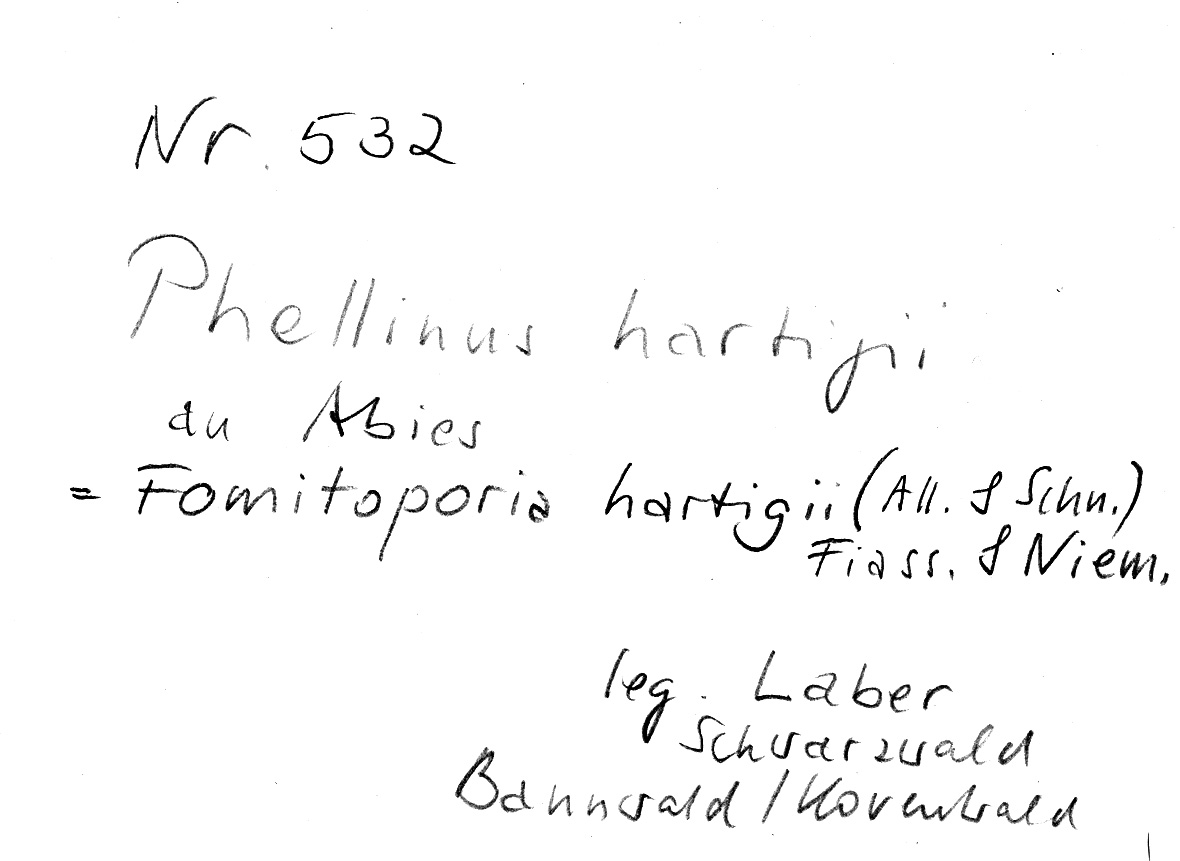 Nr. 532
Phellinus hartigii
an Abies
= Fomitoporia hartigii (All. & Schn.)
Fiass. & Niem.
leg. Laber
Schwarzwald
Bannwald /